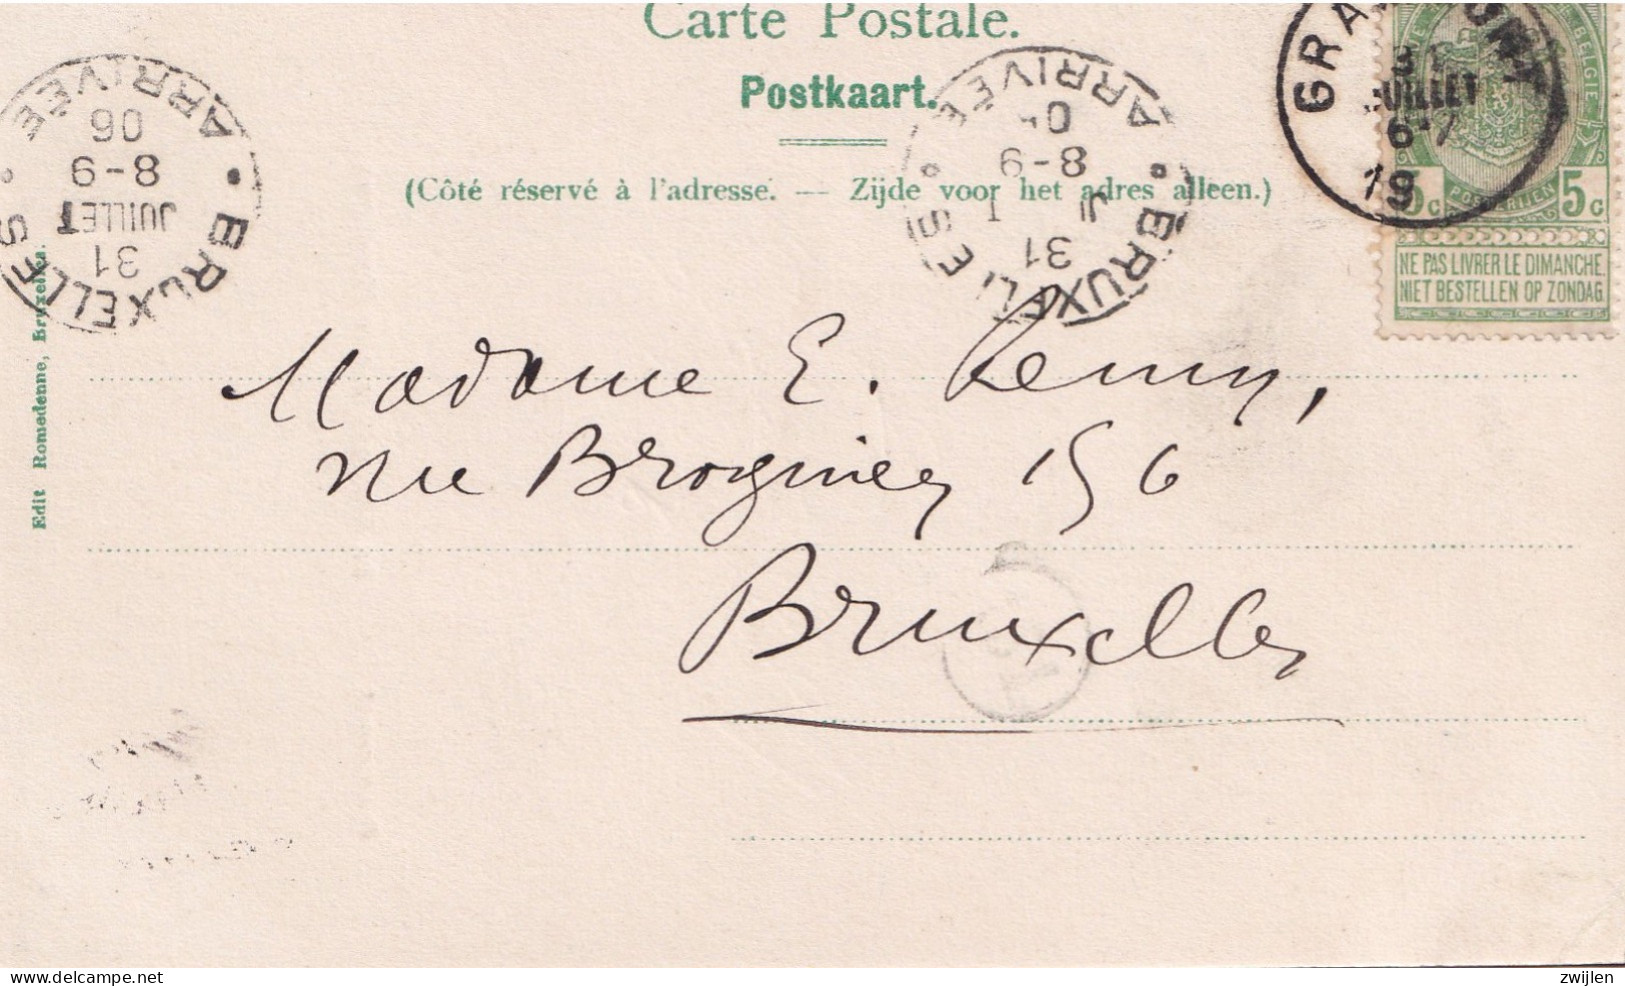 Carte Postale.
Postkaart.
(Côté réservé à l'adresse. — Zijde voor het adres alleen.)
BRUXELLES
31
JUILLET
8-9
06
ARRIVÉE
BRUXELLES
31
8-9
ARRIVÉE
31
JUILLET
6-7
19
BELGIE
POSTERIJEN
5c 5c
NE PAS LIVRER LE DIMANCHE
NIET BESTELLEN OP ZONDAG
Edit Romedenne, Bruxelles.
Madame E. Remy,
rue Brogniez 156
Bruxelles
zwijlen